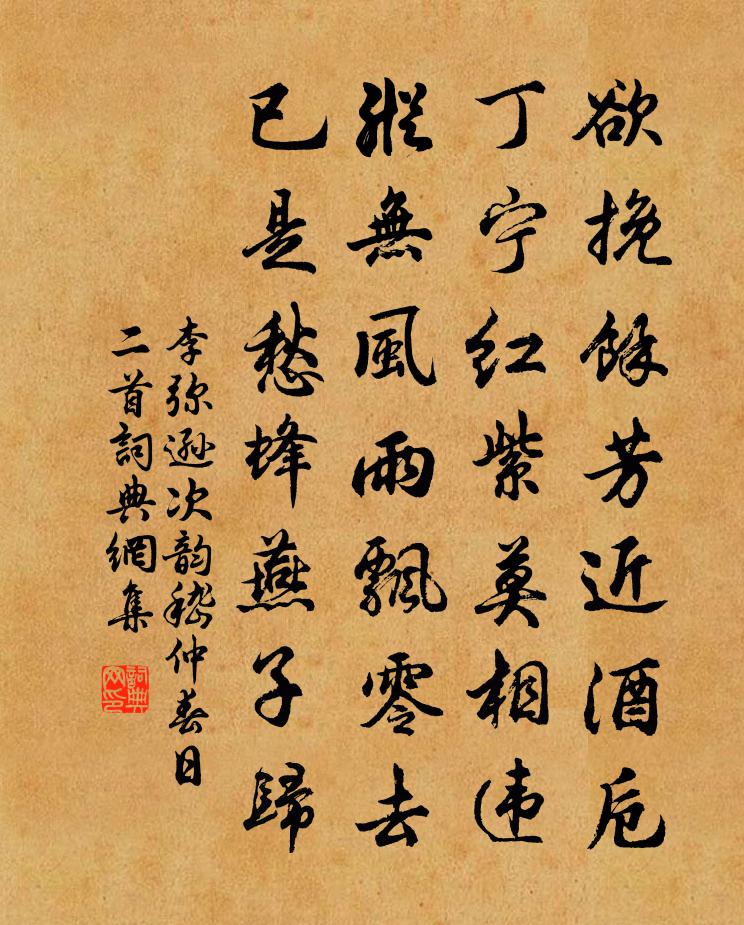 欲挽餘芳近酒卮
丁宁紅紫莫相违
縱無風雨飄零去
已是愁蜂燕子歸
李弥遜次韵嵇仲春日
二首詞典網集
詞典
网印